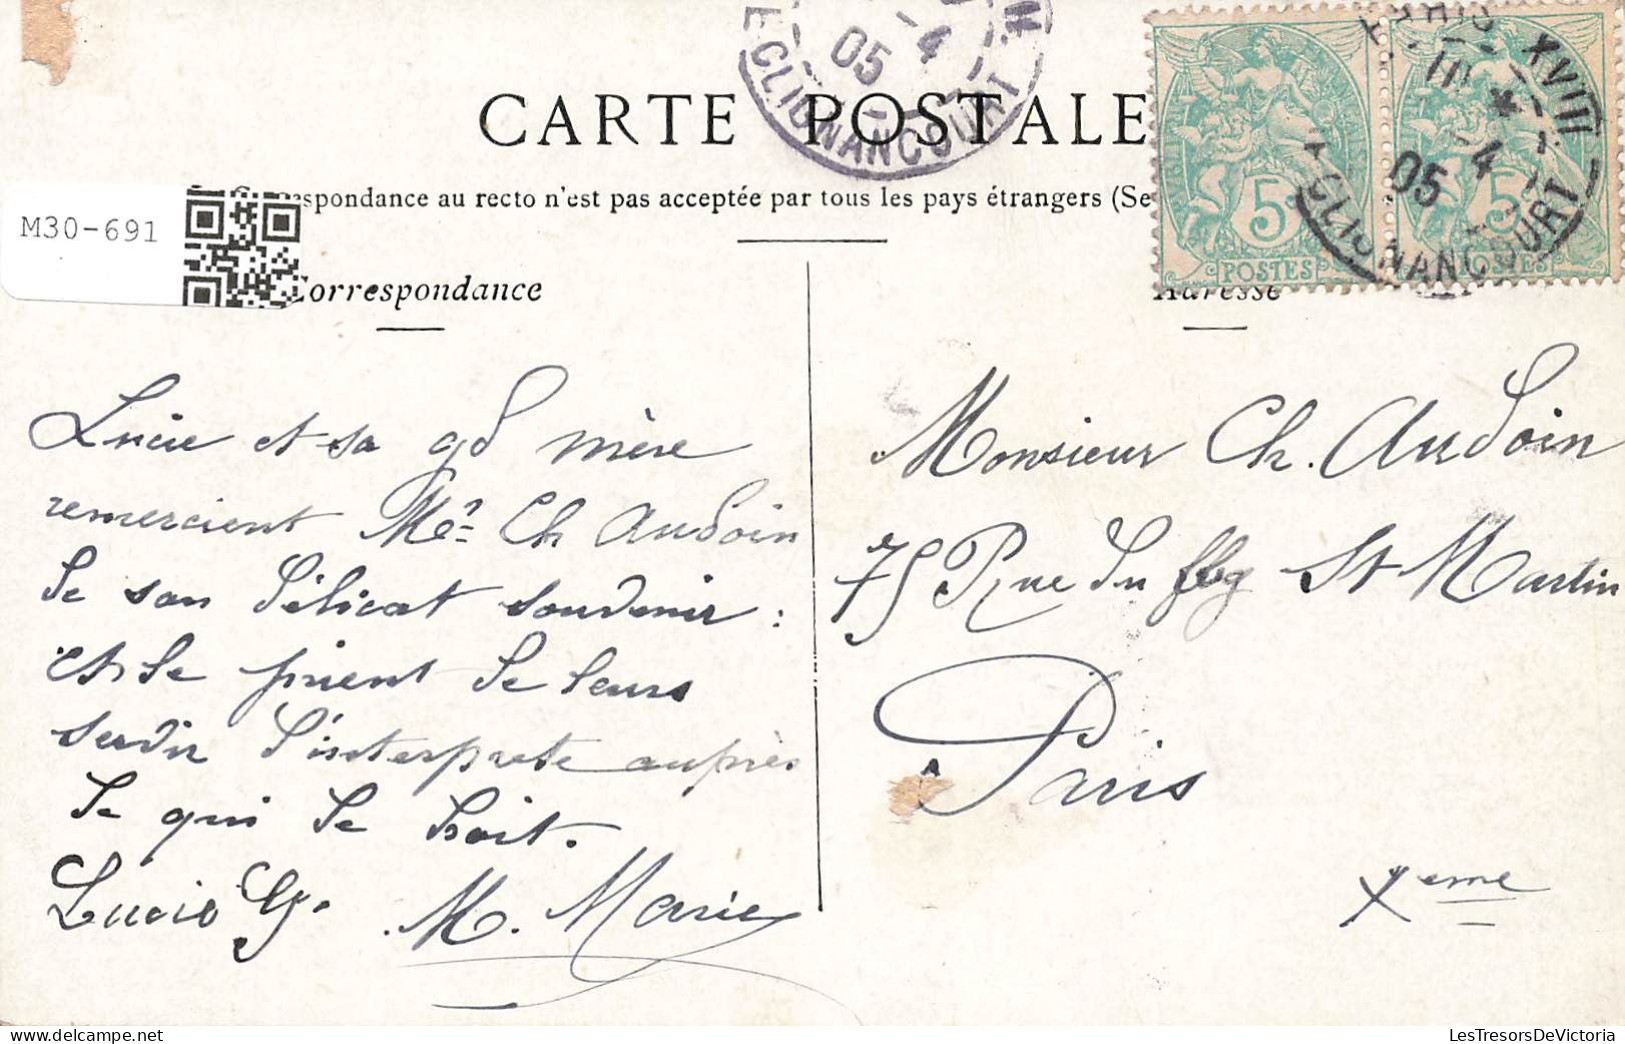 CARTE POSTALE
spondance au recto n'est pas acceptée par tous les pays étrangers (Se
M30-691
Correspondance
Lucie et sa gd mère
remercient Mr Ch Audoin
de son délicat souvenir :
et le prient de leurs
servir d'interprete auprès
de qui de droit.
Lucie G. M. Marie
Adresse
Monsieur Ch. Audoin
75 Rue du fbg St Martin
Paris
Xeme
5 POSTES
5 POSTES
PARIS XVIII
CLIGNANCOURT
-4
05
CLIGNANCOURT
-4
05
LesTresorsDeVictoria